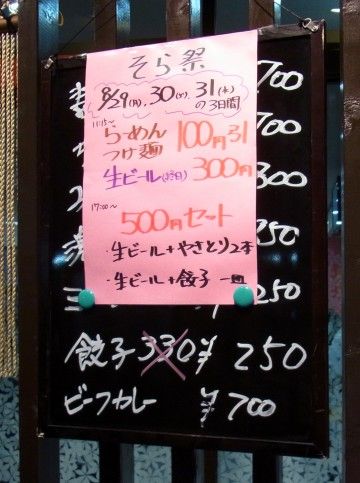 そら祭
8/29(月), 30(火), 31(水)
の3日間
11:15～
らーめん
つけ麺 100円引
生ビール(終日) 300円
17:00～
500円セット
・生ビール+やきとり2本
・生ビール+餃子 一皿
700
700
300
250
250
餃子 330 ¥250
ビーフカレー ¥700